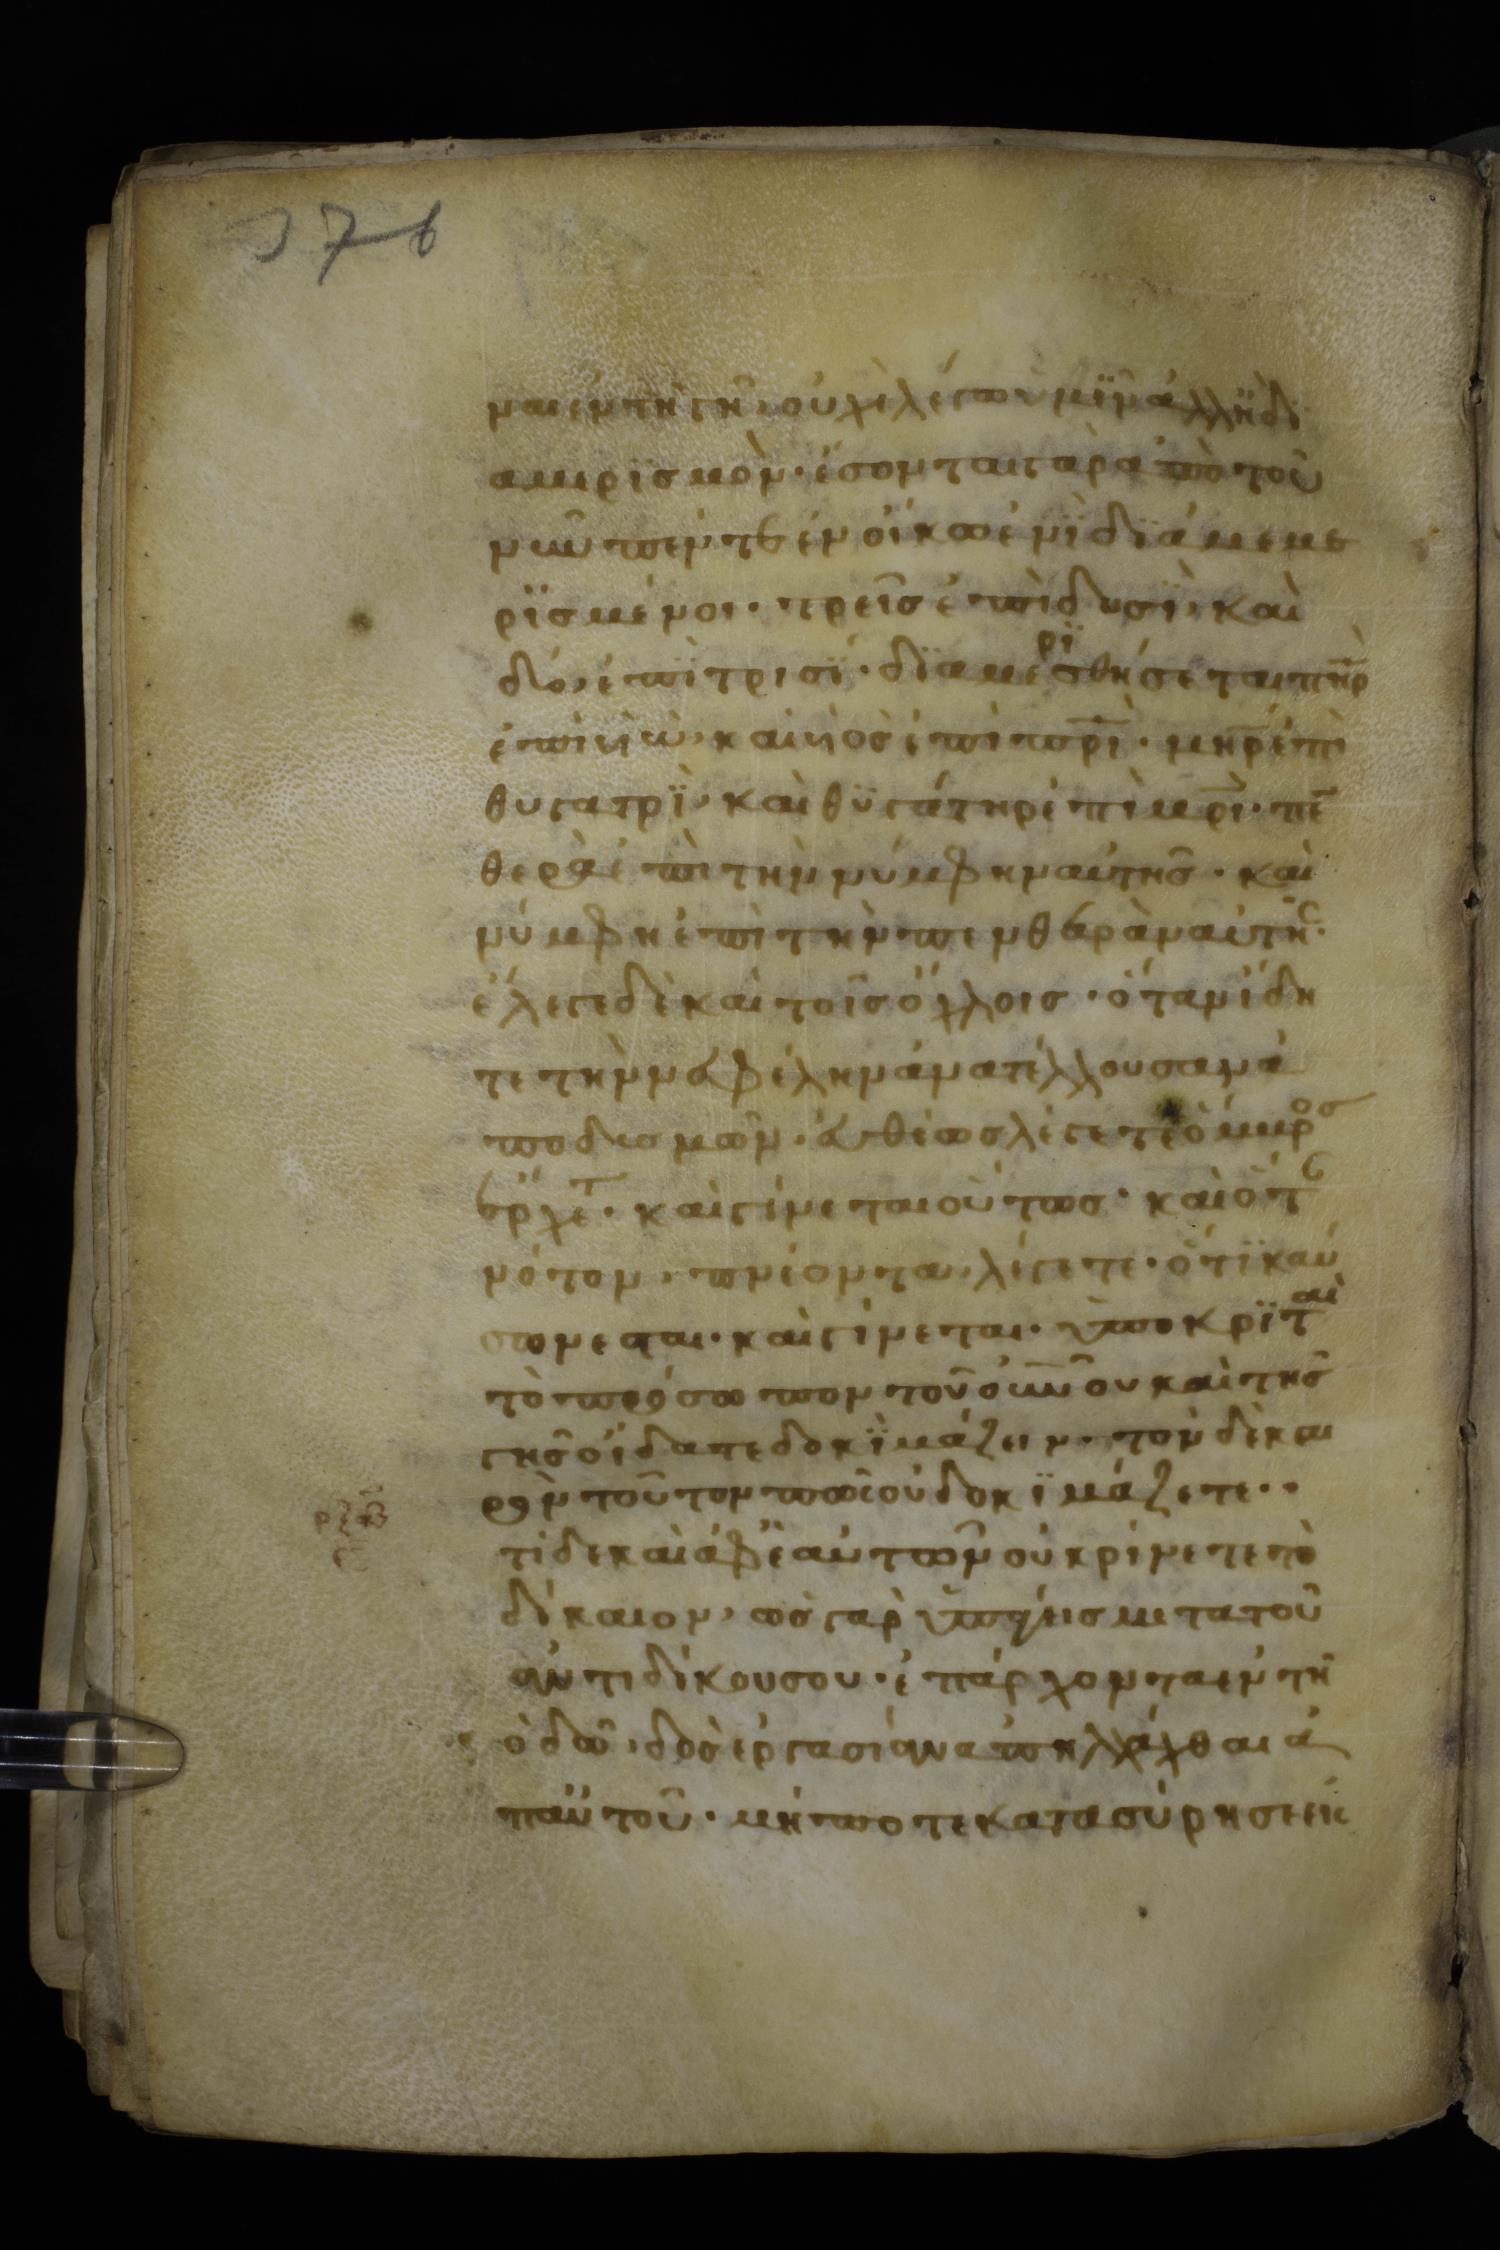 376
ναι ἐν τῆ γῆ, οὐχὶ λέγω ὑμῖν ἀλλῆ δι
αμερισμὸν· ἔσονται γὰρ ἀπὸ τοῦ
νῦν πέντε ἐν οἴκω ἑνὶ διάμεμε
ρϊσμένοι· τρεῖς ἐπὶ δυσϊ, καὶ
δύο, ἐπὶ τρισϊ· διαμερϊσθήσεται πη̅ρ
ἐπὶ υἱῶ, καὶ υἱὸς ἐπὶ πρ̅ι· μηρ̅ ἐπὶ
θυγατρὶ, καὶ θυγάτηρ ἐπὶ μρ̅ι· πε̅
θερὰ ἐπι τὴν νύμφην αὐτῆς· καὶ
νύμφη ἐπὶ τὴν πενθερὰν αὐτῆς·
ἔλεγε δὲ καὶ τοῖς ὄχλοις· ὅταν ἴδη
τε τὴν νεφέλην ἀνατέλλουσαν ἀ
πο δυσμῶν· εὐθέως λέγετε ὄμβρος
ἔρχετ· καὶ γίνεται οὕτως· καὶ ὅτε
νότον, πνέοντα, λέγετε· ὅτι καύ
σων εσται· καὶ γίνεται· ὑποκρϊταὶ
τὸ πρόσωπον τοῦ ου̅νου καὶ τῆς
γῆς οἴδατε δοκϊμάζειν· τὸν δὲ και
ρὸν τοῦτον πῶς οὐ δοκϊμάζετε··
τί δε καὶ ἀφ ἑαυτῶν οὐ κρίνετε τὸ
δίκαιον, ὡς γὰρ ὑπάγεις μετα τοῦ
ἀντιδίκου σου· ἐπ ἄρχοντα ἐν τῆ
ὁδῶ, δὸς ἐργασίαν ἀπηλλάχθαι ἀ
π αὐτοῦ· μήποτε κατασύρη σε εἰς